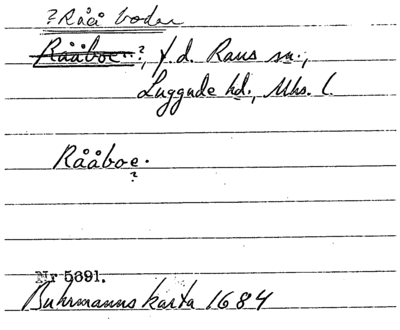 ?Råå bodar
Rååboe.?, f.d. Raus sn.,
Luggude hd., Mhs. l.
Rååboe.
?
Nr 5391.
Buhrmanns karta 1684